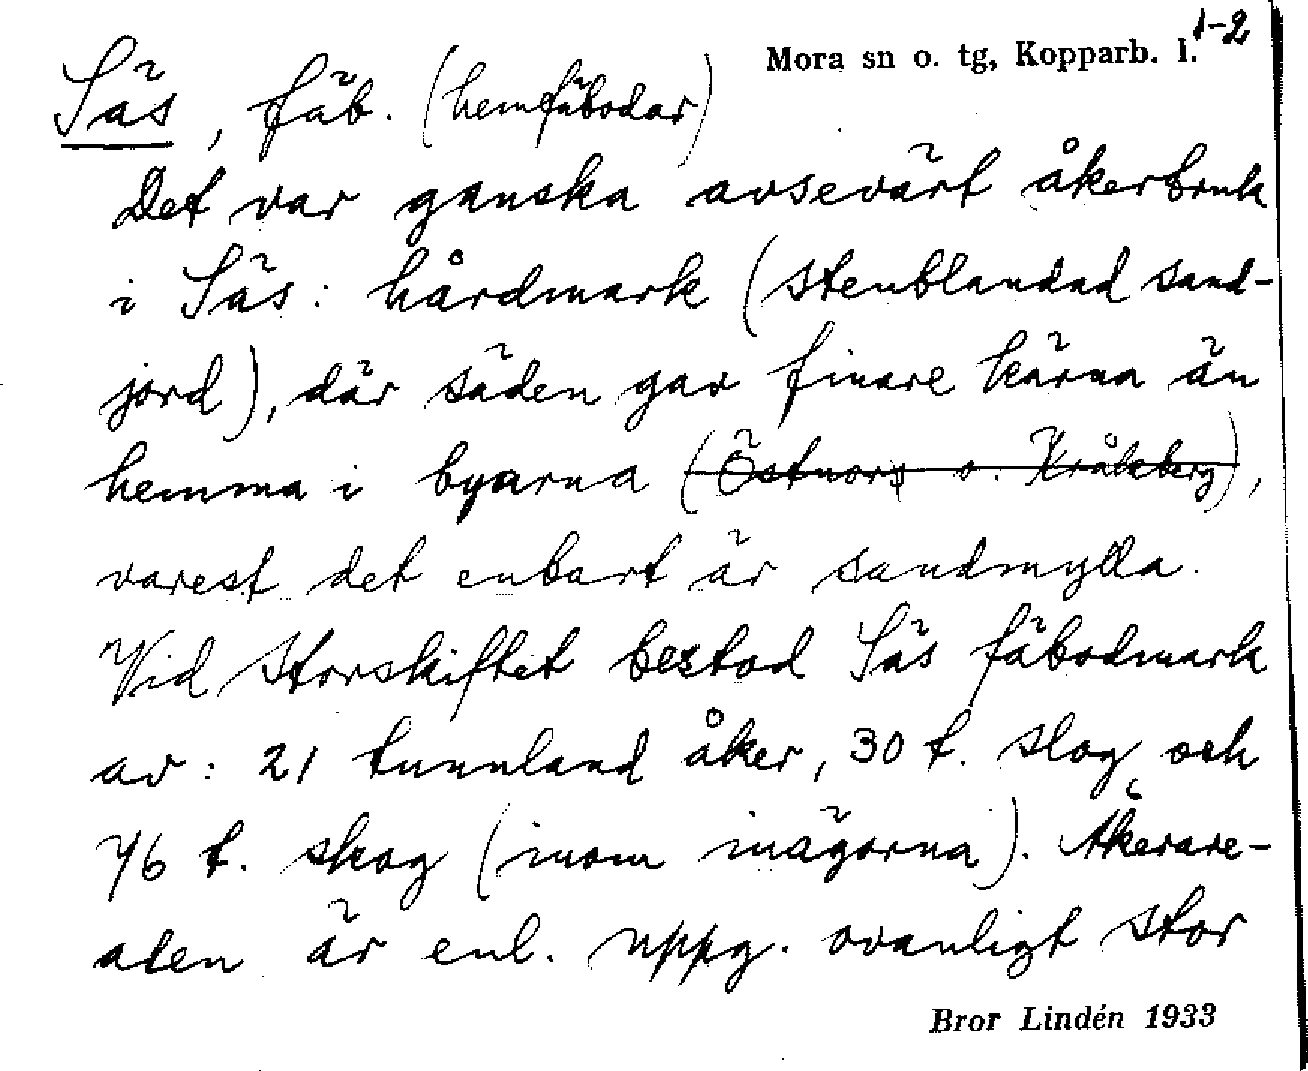 1-2
Mora sn o. tg, Kopparb. l.
Säs, fäb. (hemfäbodar)
Det var ganska avsevärt åkerbruk
i Säs: hårdmark (stenblandad sand-
jord), där säden gav finare kärna än
hemma i byarna (Östnors o. Kråkberg),
varest det enbart är sandmylla.
Vid storskiftet bestod Säs fäbodmark
av: 21 tunnland åker, 30 t. slog och
76 t. skog (inom inägorna). Åkerare-
alen är enl. uppg. ovanligt stor
Bror Lindén 1933